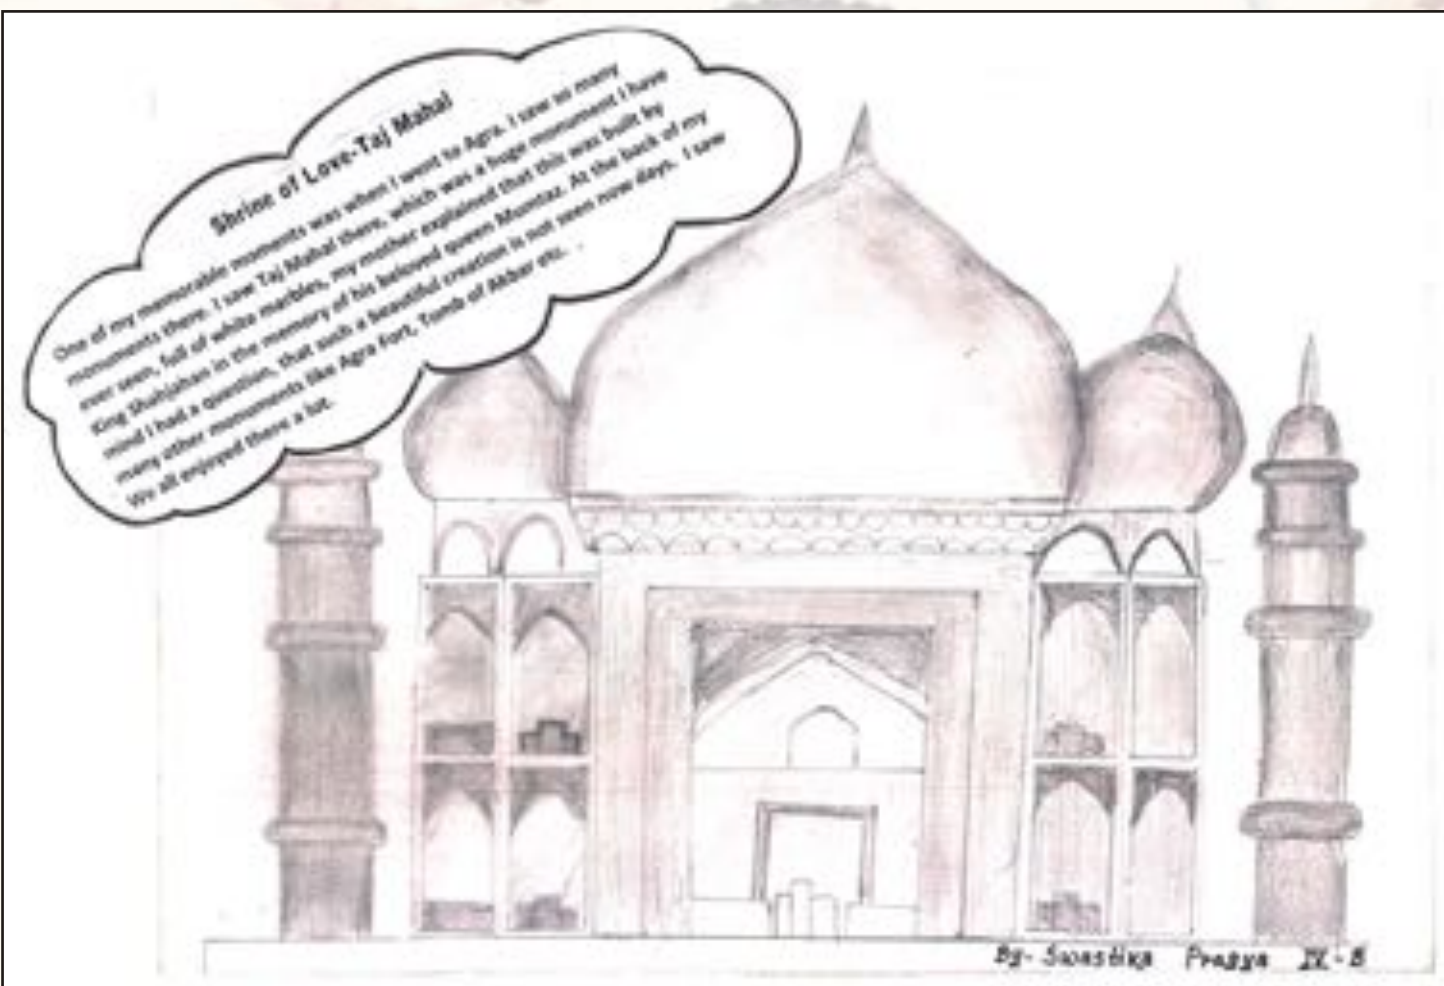 Shrine of Love-Taj Mahal
One of my memorable moments was when I went to Agra. I saw so many
monuments there. I saw Taj Mahal there, which was a huge monument I have
ever seen, full of white marbles, my mother explained that this was built by
King Shahjahan in the memory of his beloved queen Mumtaz. At the back of my
mind I had a question, that such a beautiful creation is not seen now days. I saw
many other monuments like Agra Fort, Tomb of Akbar etc. .
We all enjoyed there a lot.
By- Swastika Pragya IX - B